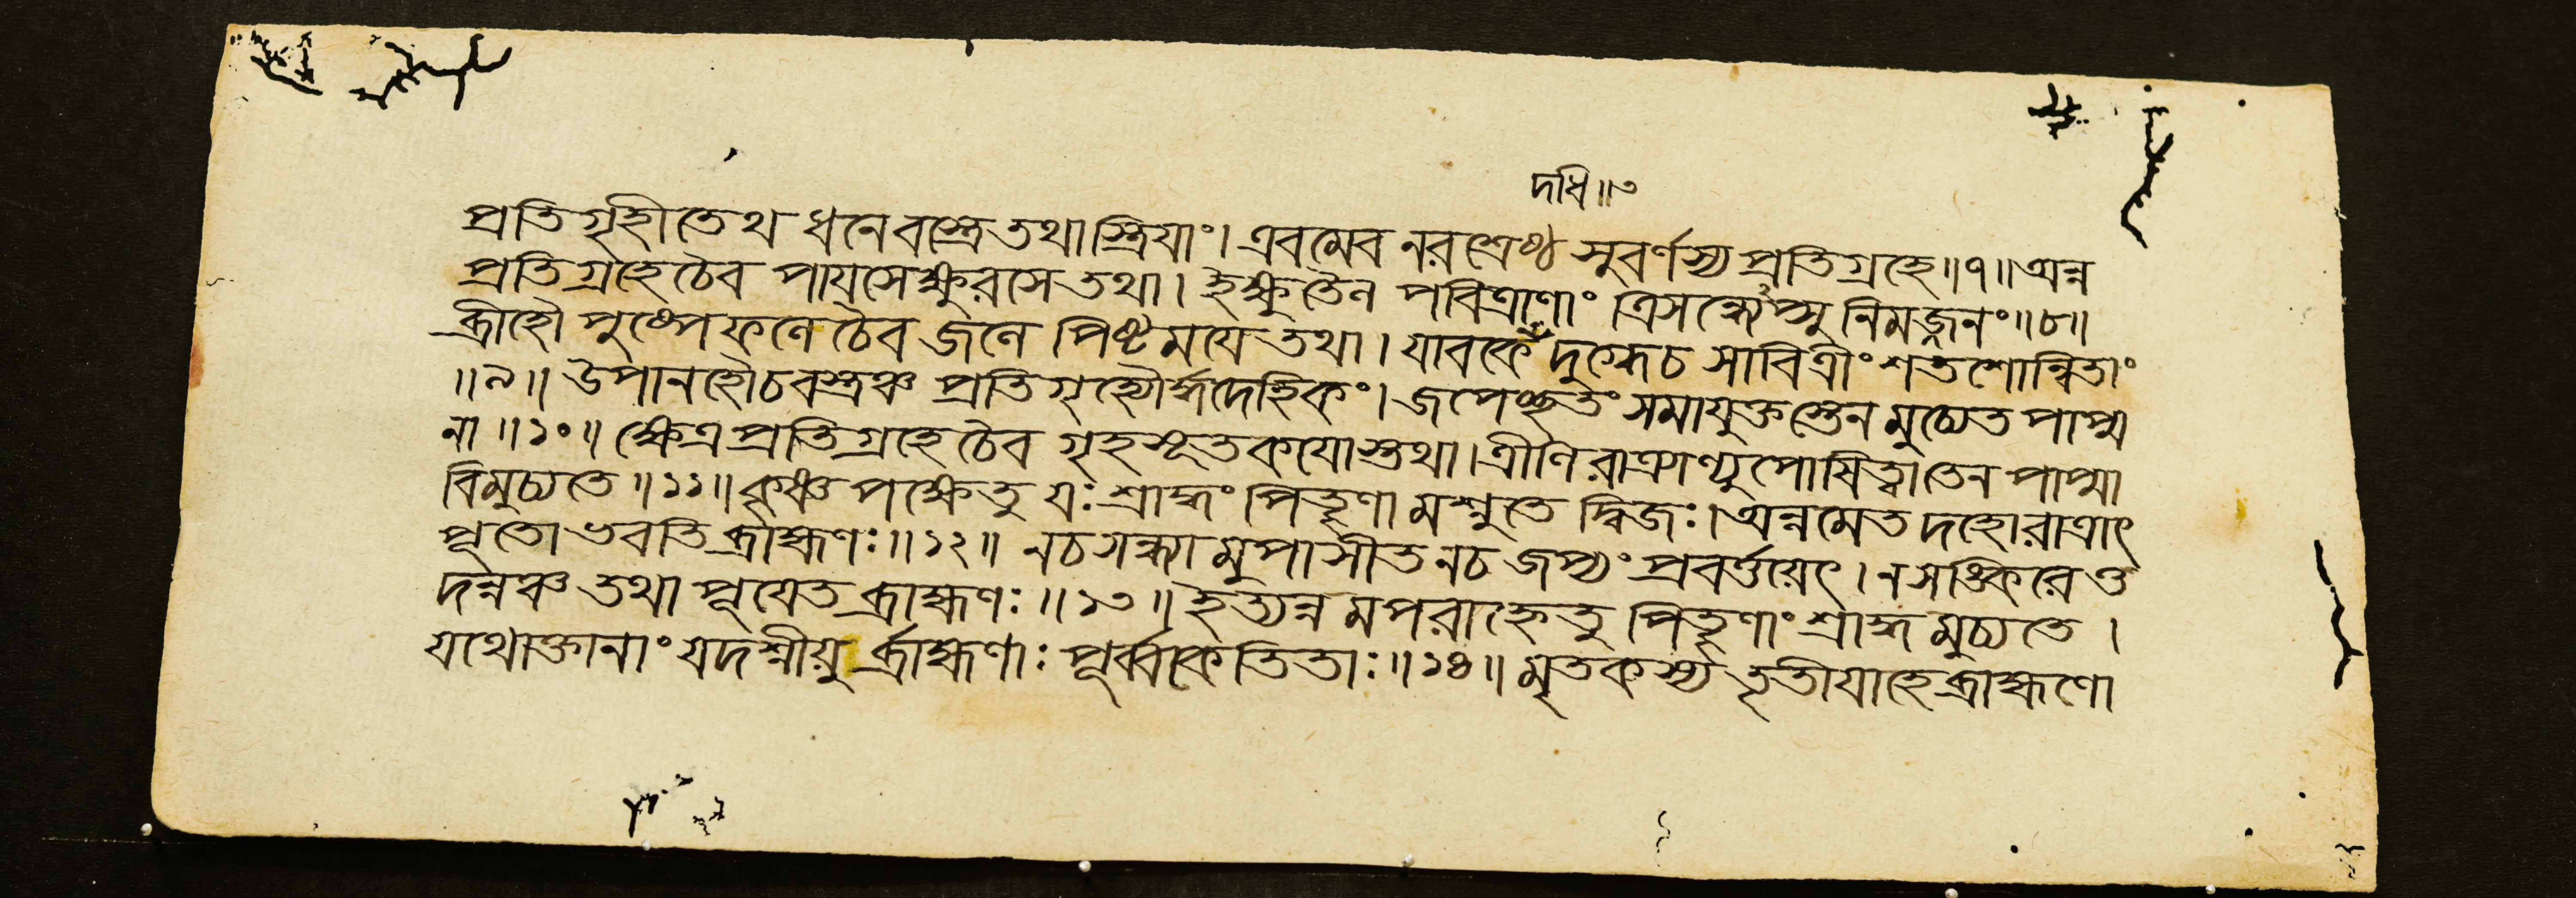 দধি॥৩
প্রতিগৃহীতেথ ধনে বস্ত্রে তথা স্ত্রিযাং। এবমেব নরশ্রেষ্ঠ সুবর্ণস্য প্রতিগ্রহে॥৭॥অন্ন
প্রতিগ্রহে চৈব পাযসেক্ষুরসে তথা। ইক্ষুতৈন পবিত্রাণাং ত্রিসন্ধ্যেপ্সু নিমজ্জনং॥৮॥
ব্রীহৌ পুষ্পে ফলে চৈব জলে পিষ্টমযে তথা। যাবকে দুগ্ধেচ সাবিত্রীং শতশোন্বিতাং
॥৯॥ উপানহৌচ বস্ত্রঞ্চ প্রতিগৃহ্যৌর্দ্ধদেহিকং। জপেচ্ছতং সমাযুক্তস্তেন মুচ্যেত পাপ্ম
না॥১০॥ ক্ষেত্রপ্রতিগ্রহে চৈব গৃহসূতকযোস্তথা। ত্রীণি রাত্রাণ্যুপোষিত্বা তেন পাপ্মা
বিমুচ্যতে॥১১॥ কৃষ্ণপক্ষেতু যঃ শ্রাদ্ধং পিতৃণামশ্নুতে দ্বিজঃ। অন্নমেতদহোরাত্রাৎ
পূতো ভবতি ব্রাহ্মণঃ॥১২॥ নচ সন্ধ্যামুপাসীত নচ জপ্যং প্রবর্ত্তয়েৎ। ন সঙ্কিরেত্ত
দন্নঞ্চ তথা পূযেত ব্রাহ্মণঃ॥১৩॥ ইত্যন্নমপরাহ্নেতু পিতৃণাং শ্রাদ্ধমুচ্যতে।
যথোক্তানাং যদশ্নীয়ুর্ব্রাহ্মণাঃ পূর্ব্বকেতিতাঃ॥১৪॥ মৃতকস্য তৃতীযাহে ব্রাহ্মণো